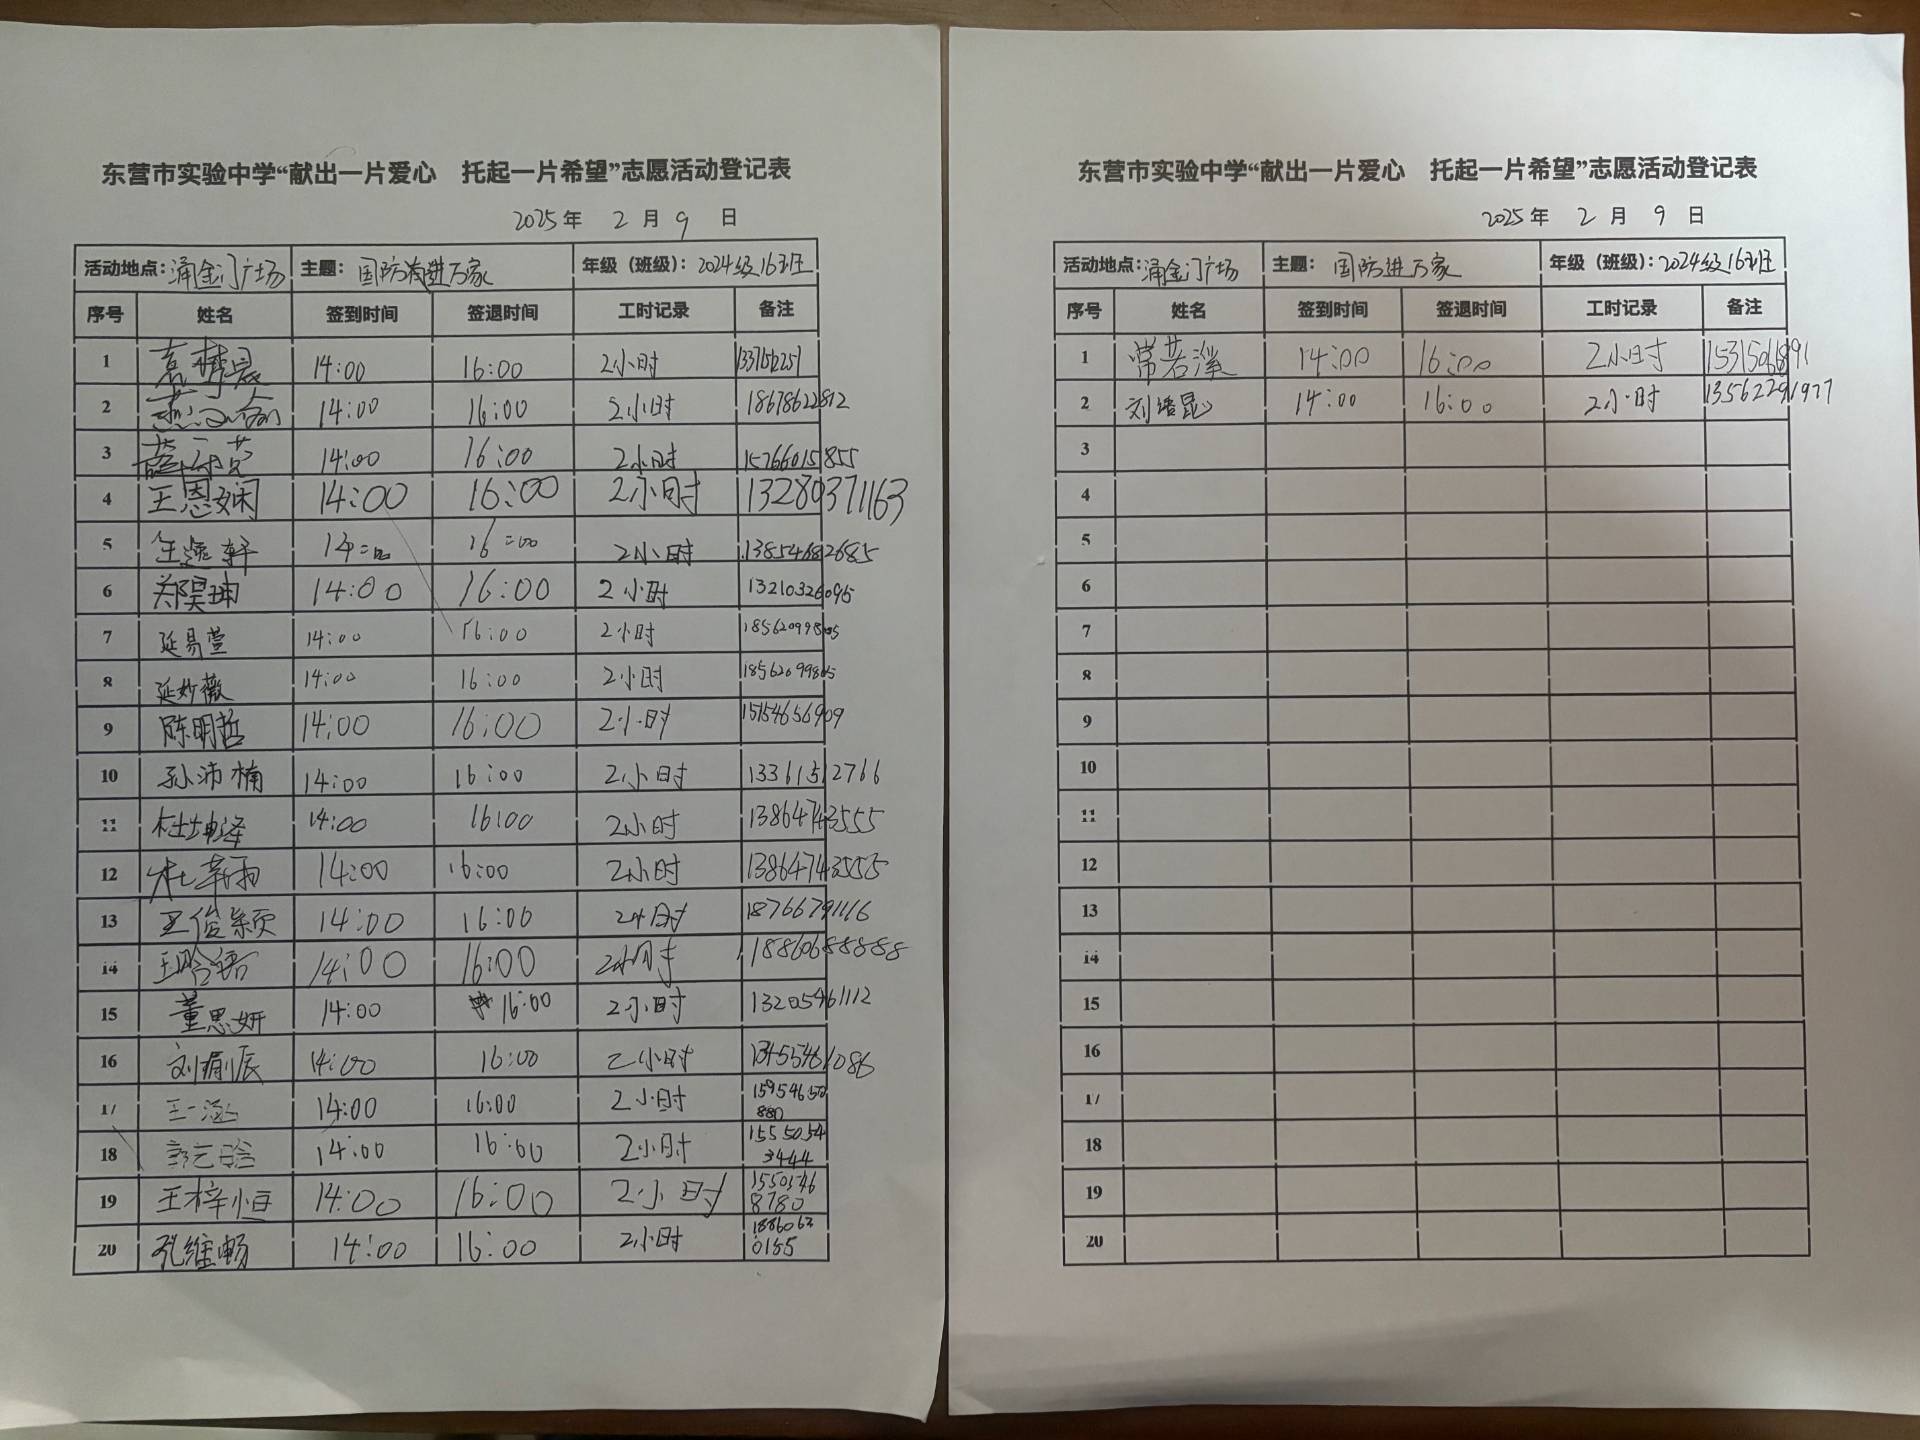 东营市实验中学“献出一片爱心 托起一片希望”志愿活动登记表
2025年 2 月 9 日
活动地点：涌金门广场 主题：国防进万家 年级（班级）：2024级16班
序号 姓名 签到时间 签退时间 工时记录 备注
1 14:00 16:00 2小时
2 14:00 16:00 2小时 18678622812
3 14:00 16:00 2小时 15766015855
4 王恩娴 14:00 16:00 2小时 13280371163
5 任逸轩 14:00 16:00 2小时 13854682685
6 郑昊珅 14:00 16:00 2小时 13210326095
7 延易萱 14:00 16:00 2小时
8 延妙薇 14:00 16:00 2小时
9 陈明哲 14:00 16:00 2小时 15154656909
10 孙沛楠 14:00 16:00 2小时 13361512766
11 杜坤泽 14:00 16:00 2小时 13864743555
12 14:00 16:00 2小时 13864743555
13 王俊颖 14:00 16:00 2小时 18766791116
14 王晗语 14:00 16:00 2小时 18860688888
15 董思妍 14:00 16:00 2小时 13205461112
16 14:00 16:00 2小时 13455461086
17 王一涵 14:00 16:00 2小时
880
18 14:00 16:00 2小时 1555054
3444
19 王梓恒 14:00 16:00 2小时 1550546
8780
20 孔维畅 14:00 16:00 2小时
0185
东营市实验中学“献出一片爱心 托起一片希望”志愿活动登记表
2025年 2 月 9 日
活动地点：涌金门广场 主题：国防进万家 年级（班级）：2024级16班
序号 姓名 签到时间 签退时间 工时记录 备注
1 常若溪 14:00 16:00 2小时
2 刘培昆 14:00 16:00 2小时 13562291977
3
4
5
6
7
8
9
10
11
12
13
14
15
16
17
18
19
20